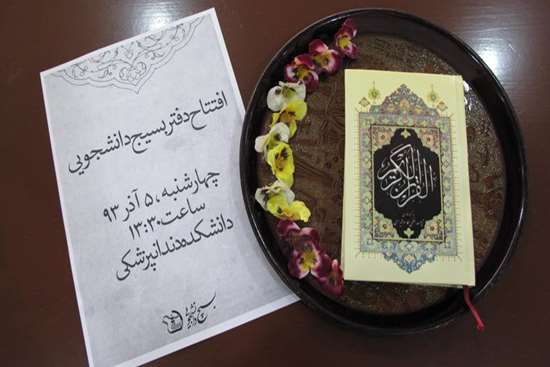 افتتاح دفتر بسیج دانشجویی
چهارشنبه، ۵ آذر ۹۳
ساعت ۱۳:۳۰
دانشکده دندانپزشکی
بسیج دانشجویی
القرآن الکریم